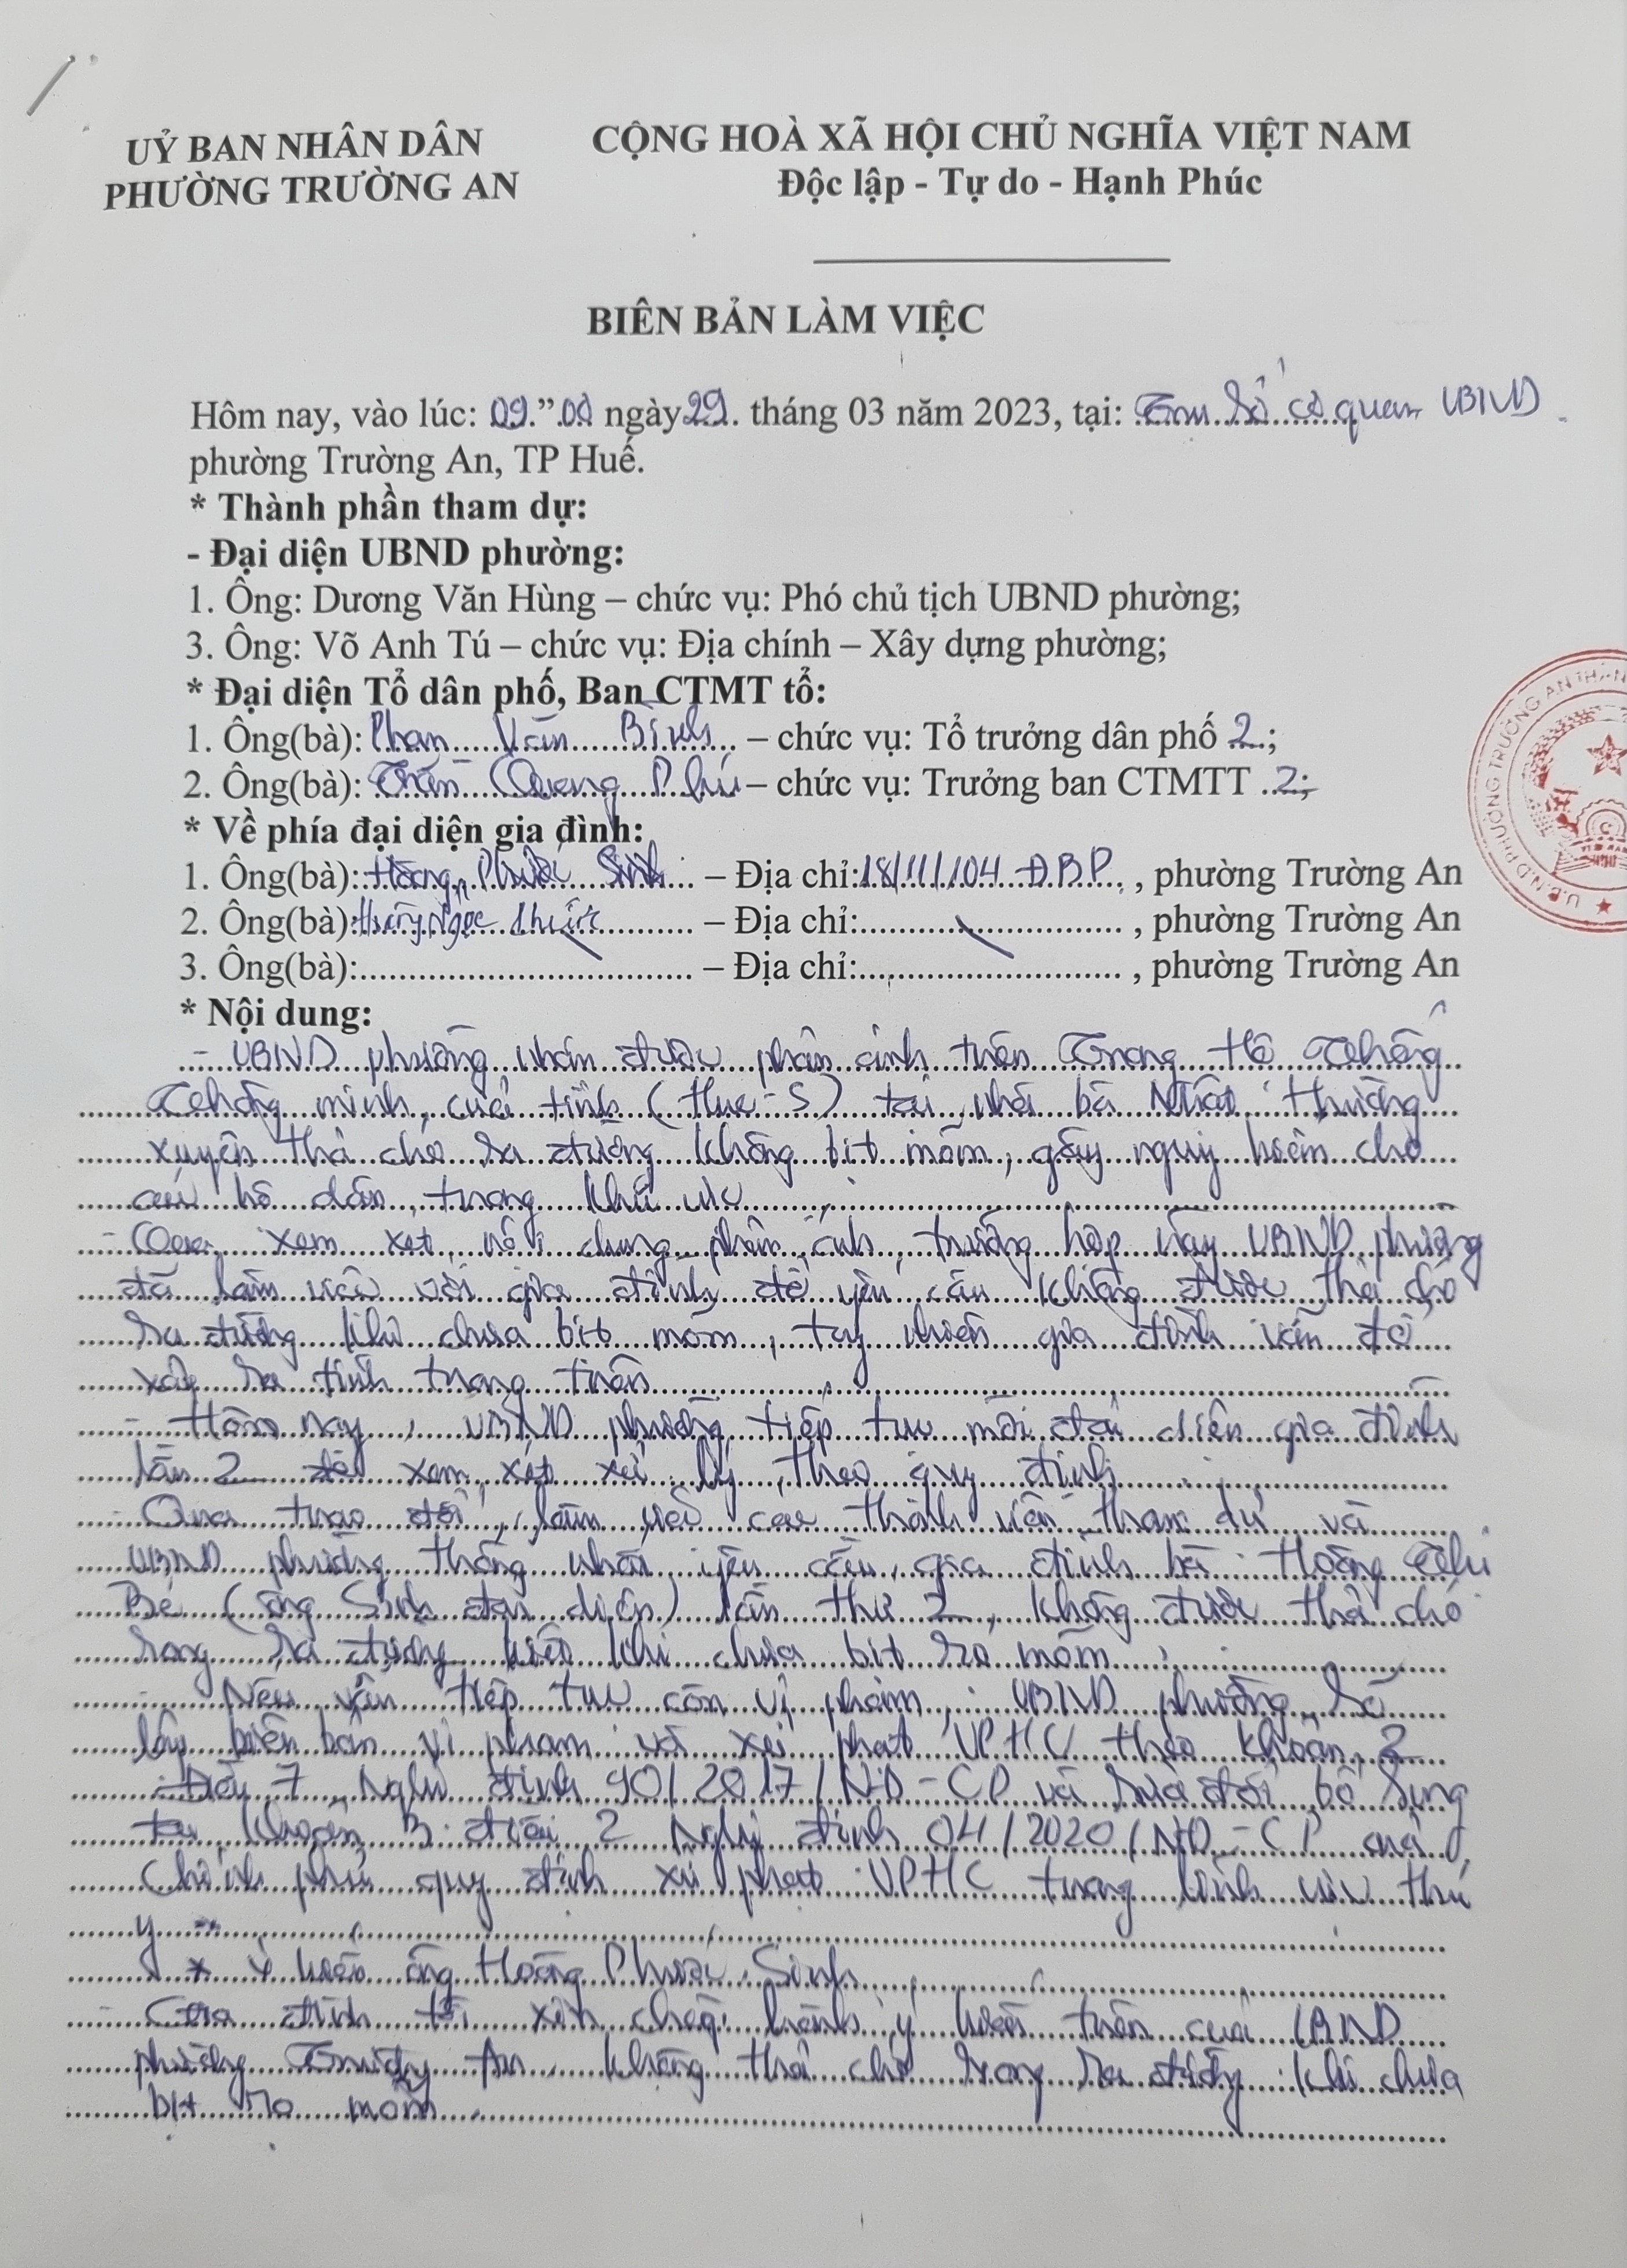 UỶ BAN NHÂN DÂN
PHƯỜNG TRƯỜNG AN
CỘNG HOÀ XÃ HỘI CHỦ NGHĨA VIỆT NAM
Độc lập - Tự do - Hạnh Phúc
BIÊN BẢN LÀM VIỆC
Hôm nay, vào lúc: 09."00 ngày 29. tháng 03 năm 2023, tại: Trụ Sở cơ quan UBND
phường Trường An, TP Huế.
* Thành phần tham dự:
- Đại diện UBND phường:
1. Ông: Dương Văn Hùng – chức vụ: Phó chủ tịch UBND phường;
3. Ông: Võ Anh Tú – chức vụ: Địa chính – Xây dựng phường;
* Đại diện Tổ dân phố, Ban CTMT tổ:
1. Ông(bà): Phan Văn Bình – chức vụ: Tổ trưởng dân phố 2.;
2. Ông(bà): Trần Quang Phú – chức vụ: Trưởng ban CTMTT 2;
* Về phía đại diện gia đình:
1. Ông(bà): Hoàng Phước Sinh – Địa chỉ: 18/11/104 ĐBP , phường Trường An
2. Ông(bà): Ngọc – Địa chỉ: , phường Trường An
3. Ông(bà): – Địa chỉ: , phường Trường An
* Nội dung:
- UBND phường nhận được phản ánh trên Trang Hệ Thống
Thông minh của tỉnh (Hue-S) tại nhà bà thường
xuyên thả chó ra đường không bịt mõm, gây nguy hiểm cho
các hộ dân trong khu vực
- Qua xem xét nội dung phản ánh, trường hợp này UBND phường
đã làm việc với gia đình để yêu cầu không được thả chó
ra đường khi chưa bịt mõm, tuy nhiên gia đình vẫn để
xảy ra tình trạng trên
- Hôm nay, UBND phường tiếp tục mời đại diện gia đình
lần 2 để xem xét xử lý theo quy định
- Qua trao đổi, làm việc các thành viên tham dự và
UBND phường thống nhất yêu cầu gia đình bà Hoàng Thị
Bé (ông Sinh đại diện) lần thứ 2, không được thả chó
rong ra đường khi chưa bịt rọ mõm
- Nếu vẫn tiếp tục còn vi phạm, UBND phường sẽ
lập biên bản vi phạm và xử phạt VPHC theo khoản 2
Điều 7 Nghị định 90/2017/NĐ-CP và sửa đổi bổ sung
tại khoản 3 điều 2 Nghị định 04/2020/NĐ-CP của
Chính phủ quy định xử phạt VPHC trong lĩnh vực thú
y
* Ý kiến ông Hoàng Phước Sinh
- Gia đình tôi xin chấp hành ý kiến trên của UBND
phường Trường An không thả chó rong ra đường khi chưa
bịt rọ mõm